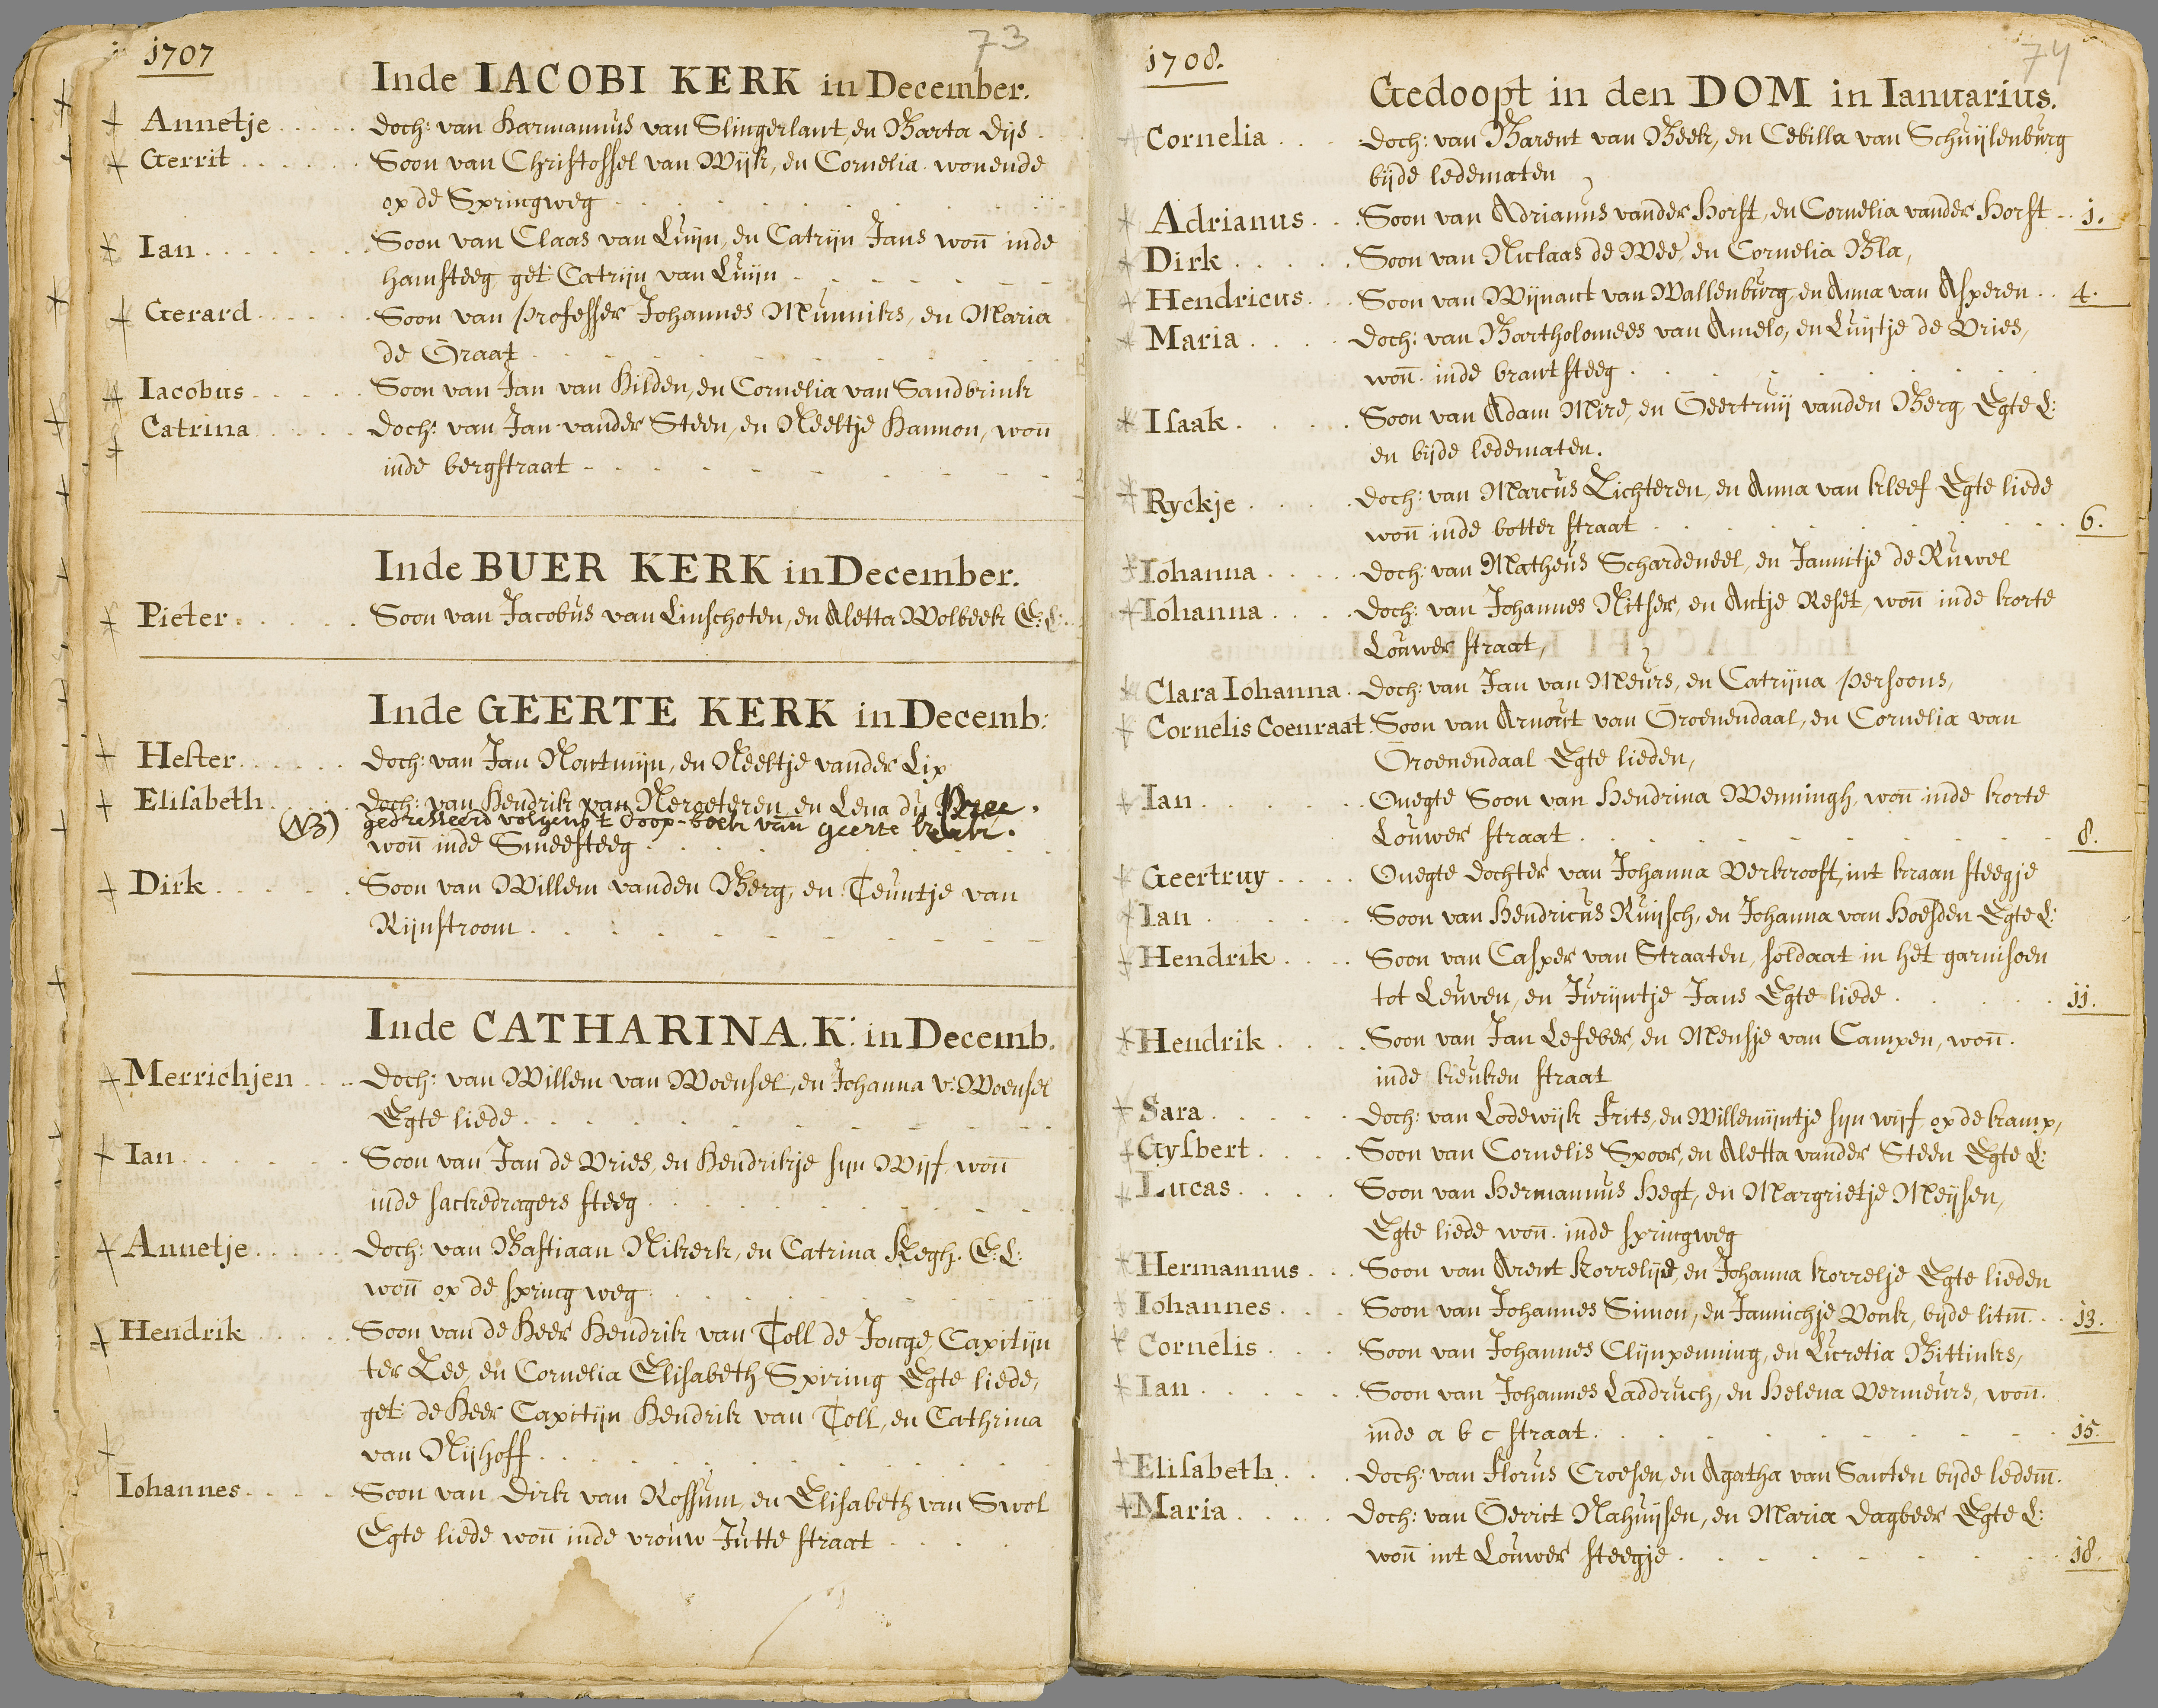 1707
73
Inde IACOBI KERK in December.
Annetje doch: van Harmannus van Slingerlant, en Barta Dijs
Gerrit Soon van Christoffel van Wijk, en Cornelia wonende
op de Springweg
Ian Soon van Claas van Luijn, en Catrijn Jans won inde
hamsteeg get: Catrijn van Luijn
Gerard Soon van professer Johannes Munniks, en Maria
de Graat
Iacobus Soon van Jan van Hilden, en Cornelia van Sandbrink
Catrina doch: van Jan vander Steen, en Neeltje Hannon, won
inde bergstraat
Inde BUER KERK in December.
Pieter Soon van Jacobus van Linschoten, en Aletta Wolbeek E: L:
Inde GEERTE KERK in Decemb:
Hester doch: van Jan Nontwijn, en Neeltje vander Lip
Elisabeth doch: van Hendrik van Nergeteren en Lena du Pree.
(NB) gedresseerd volgens t doop-boek van geerte kerk.
won inde Smeesteeg
Dirk Soon van Willem vanden Berg, en Teuntje van
Rijnstroom
Inde CATHARINA. K: in Decemb.
Merrichjen doch: van Willem van Woensel, en Johanna v: Woensel
Egte liede
Ian Soon van Jan de Vries, en Hendrikje sijn Wijf won
inde sackedragers steeg
Annetje doch: van Bastiaan Nikerk, en Catrina Kegh. E: L:
won op de spring weg
Hendrik Soon van de Heer Hendrik van Toll de Jonge, Capitijn
ter Zee, en Cornelia Elisabeth Spiring Egte liede,
get: de Heer Capitijn Hendrik van Toll, en Cathrina
van Nijhoff
Iohannes Soon van Dirk van Rossum, en Elisabeth van Swol
Egte liede won inde vrouw Jutte straat
1708.
74
Gedoopt in den DOM in Ianuarius.
Cornelia doch: van Barent van Beek, en Cebilla van Schuijlenburg
bijde ledematen
Adrianus Soon van Adrianus vander Horst, en Cornelia vander Horst 1.
Dirk Soon van Niclaas de Wee, en Cornelia Bla,
Hendricus Soon van Wijnant van Wallenburg, en Anna van Asperen 4.
Maria doch: van Bartholomees van Amelo, en Luijtje de Vries,
won. inde brantsteeg
Isaak Soon van Adam Mire, en Geertruij vanden Berg Egte L:
en bijde ledematen.
Ryckje doch: van Marcus Lichteren, en Anna van kleef Egte liede
won inde botter straat 6.
Iohanna doch: van Matheus Schardeneel, en Jannitje de Ruwel
Iohanna doch: van Johannes Nitser, en Antje Reset, won inde korte
Louwer straat,
Clara Iohanna doch: van Jan van Meurs, en Catrijna persoons,
Cornelis Coenraat Soon van Arnout van Groenendaal, en Cornelia van
Groenendaal Egte lieden,
Ian Onegte Soon van Hendrina Wenningh, won inde korte
Louwer straat 8.
Geertruy Onegte dochter van Johanna Verkrooft, int kraan steegje
Ian Soon van Hendricus Ruijsch, en Johanna van Hoesden Egte L:
Hendrik Soon van Casper van Straaten, soldaat in het garnisoen
tot Leuven, en Jurijntje Jans Egte liede 11.
Hendrik Soon van Jan Lefeber, en Mensje van Campen, won.
inde keuken straat
Sara doch: van Lodewijk Frits, en Willemijntje sijn wijf op de kamp,
Gysbert Soon van Cornelis Spoor, en Aletta vander Steen Egte L:
Lucas Soon van Hermannus Hegt, en Margrietje Meijsen,
Egte liede won. inde springweg
Hermannus Soon van Arent Korrelije, en Johanna korrelje Egte lieden
Iohannes Soon van Johannes Simon, en Jannichje Vonk, bijde litm. 13.
Cornelis Soon van Johannes Clijnpenning, en Lucretia Bittinks,
Ian Soon van Johannes Laddruch, en Helena Vermeurs, won.
inde a b c straat 15.
Elisabeth doch: van Florus Croesen, en Agatha van Santen bijde ledem.
Maria doch: van Gerrit Nahuijsen, en Maria dagbeer Egte L:
won int Louwer steegje 18.